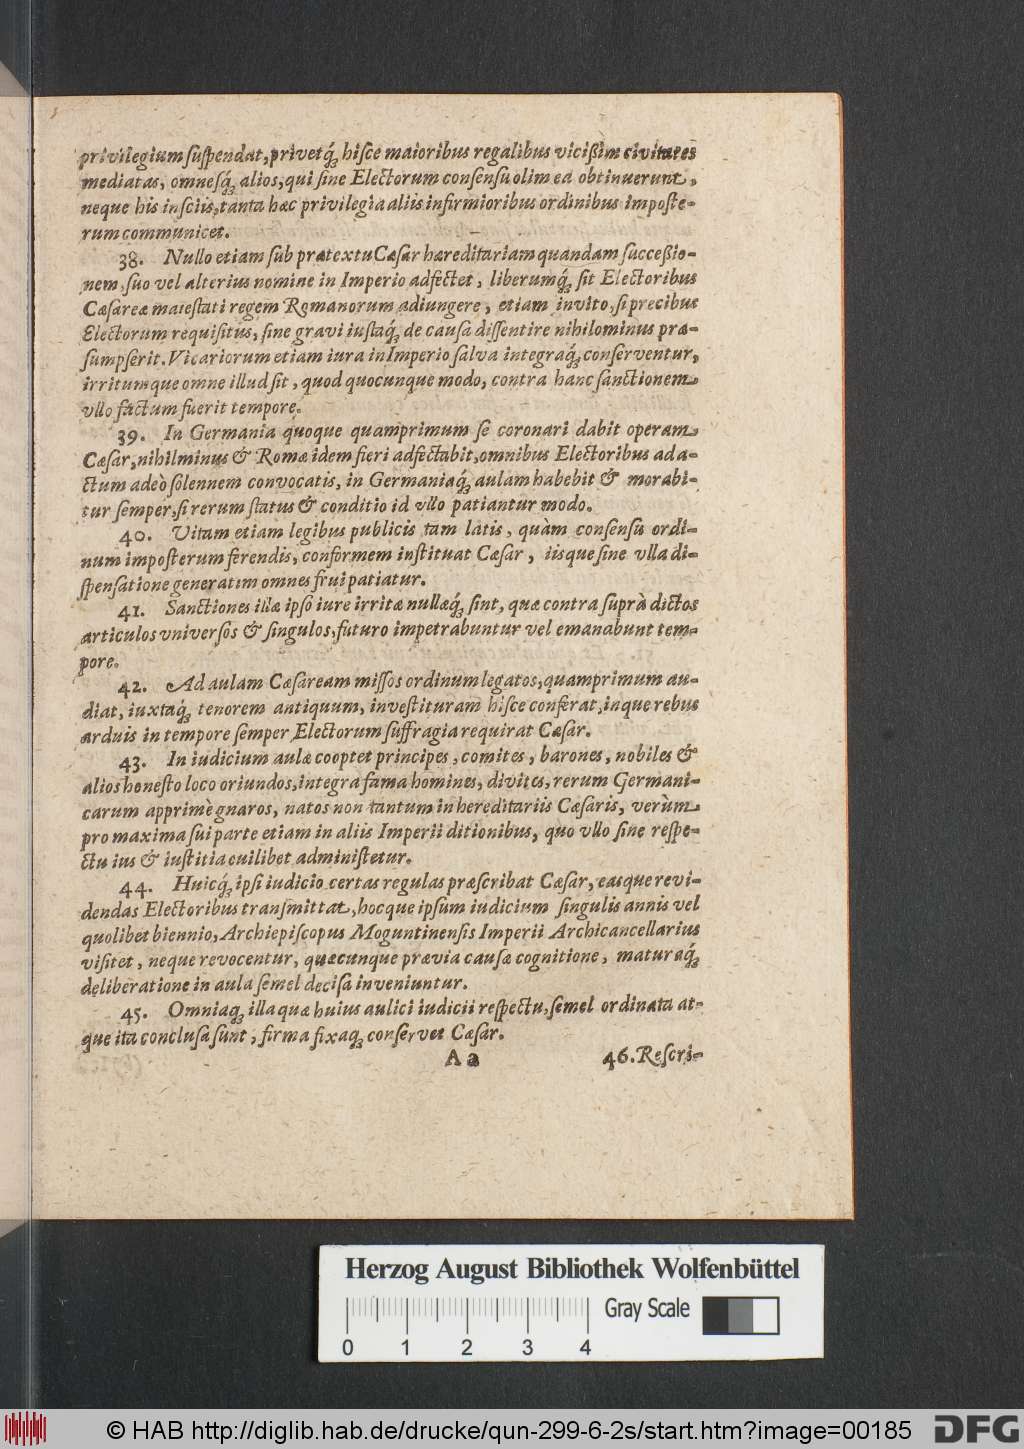 privilegium suſpendat, privetq́ꝫ hiſce maioribus regalibus viciſſim civitates
mediatas, omneſq́ꝫ alios, qui ſine Electorum conſenſu olim ea obtinuerunt,
neque his inſciis, tanta hæc privilegia aliis infirmioribus ordinibus impoſte-
rum communicet.
38. Nullo etiam ſub prætextu Cæſar hæreditariam quandam ſucceßio-
nem, ſuo vel alterius nomine in Imperio adfectet, liberumq́ꝫ ſit Electoribus
Cæſareæ maieſtati regem Romanorum adiungere, etiam invito, ſi precibus
Electorum requiſitus, ſine gravi iuſtaq́ꝫ de cauſa diſſentire nihilominus præ-
ſumpſerit. Vicariorum etiam iura in Imperio ſalva integraq́ꝫ conſerventur,
irritumque omne illud ſit, quod quocunque modo, contra hanc ſanctionem
vllo factum fuerit tempore.
39. In Germania quoque quamprimum ſe coronari dabit operam
Cæſar, nihilminus & Romæ idem fieri adfectabit, omnibus Electoribus ad a-
ctum adeò ſolennem convocatis, in Germaniaq́ꝫ aulam habebit & morabi-
tur ſemper, ſi rerum ſtatus & conditio id vllo patiantur modo.
40. Vitam etiam legibus publicis tam latis, quàm conſenſu ordi-
num impoſterum ferendis, conformem inſtituat Cæſar, iisque ſine vlla di-
ſpenſatione generatim omnes frui patiatur.
41. Sanctiones illæ ipſo iure irritæ nullæq́ꝫ ſint, quæ contra ſuprà dictos
articulos vniverſos & ſingulos, futuro impetrabuntur vel emanabunt tem-
pore.
42. Ad aulam Cæſaream miſſos ordinum legatos, quamprimum au-
diat, iuxtaq́ꝫ tenorem antiquum, inveſtituram hiſce conferat, inque rebus
arduis in tempore ſemper Electorum ſuffragia requirat Cæſar.
43. In iudicium aulæ cooptet principes, comites, barones, nobiles &
alios honeſto loco oriundos, integra fama homines, divites, rerum Germani-
carum apprimè gnaros, natos non tantum in hereditariis Cæſaris, verùm
pro maxima ſui parte etiam in aliis Imperii ditionibus, quo vllo ſine reſpe-
ctu ius & iuſtitia cuilibet adminiſtetur.
44. Huicq́ꝫ ipſi iudicio certas regulas præſcribat Cæſar, easque revi-
dendas Electoribus tranſmittat, hocque ipſum iudicium ſingulis annis vel
quolibet biennio, Archiepiſcopus Moguntinenſis Imperii Archicancellarius
viſitet, neque revocentur, quæcunque prævia cauſæ cognitione, maturaq́ꝫ
deliberatione in aula ſemel deciſa inveniuntur.
45. Omniaq́ꝫ illa quæ huius aulici iudicii reſpectu, ſemel ordinata at-
que ita concluſa ſunt, firma fixaq́ꝫ conſervet Cæſar.
A a 46. Reſcri-
Herzog August Bibliothek Wolfenbüttel
Gray Scale
0 1 2 3 4
© HAB http://diglib.hab.de/drucke/qun-299-6-2s/start.htm?image=00185
DFG